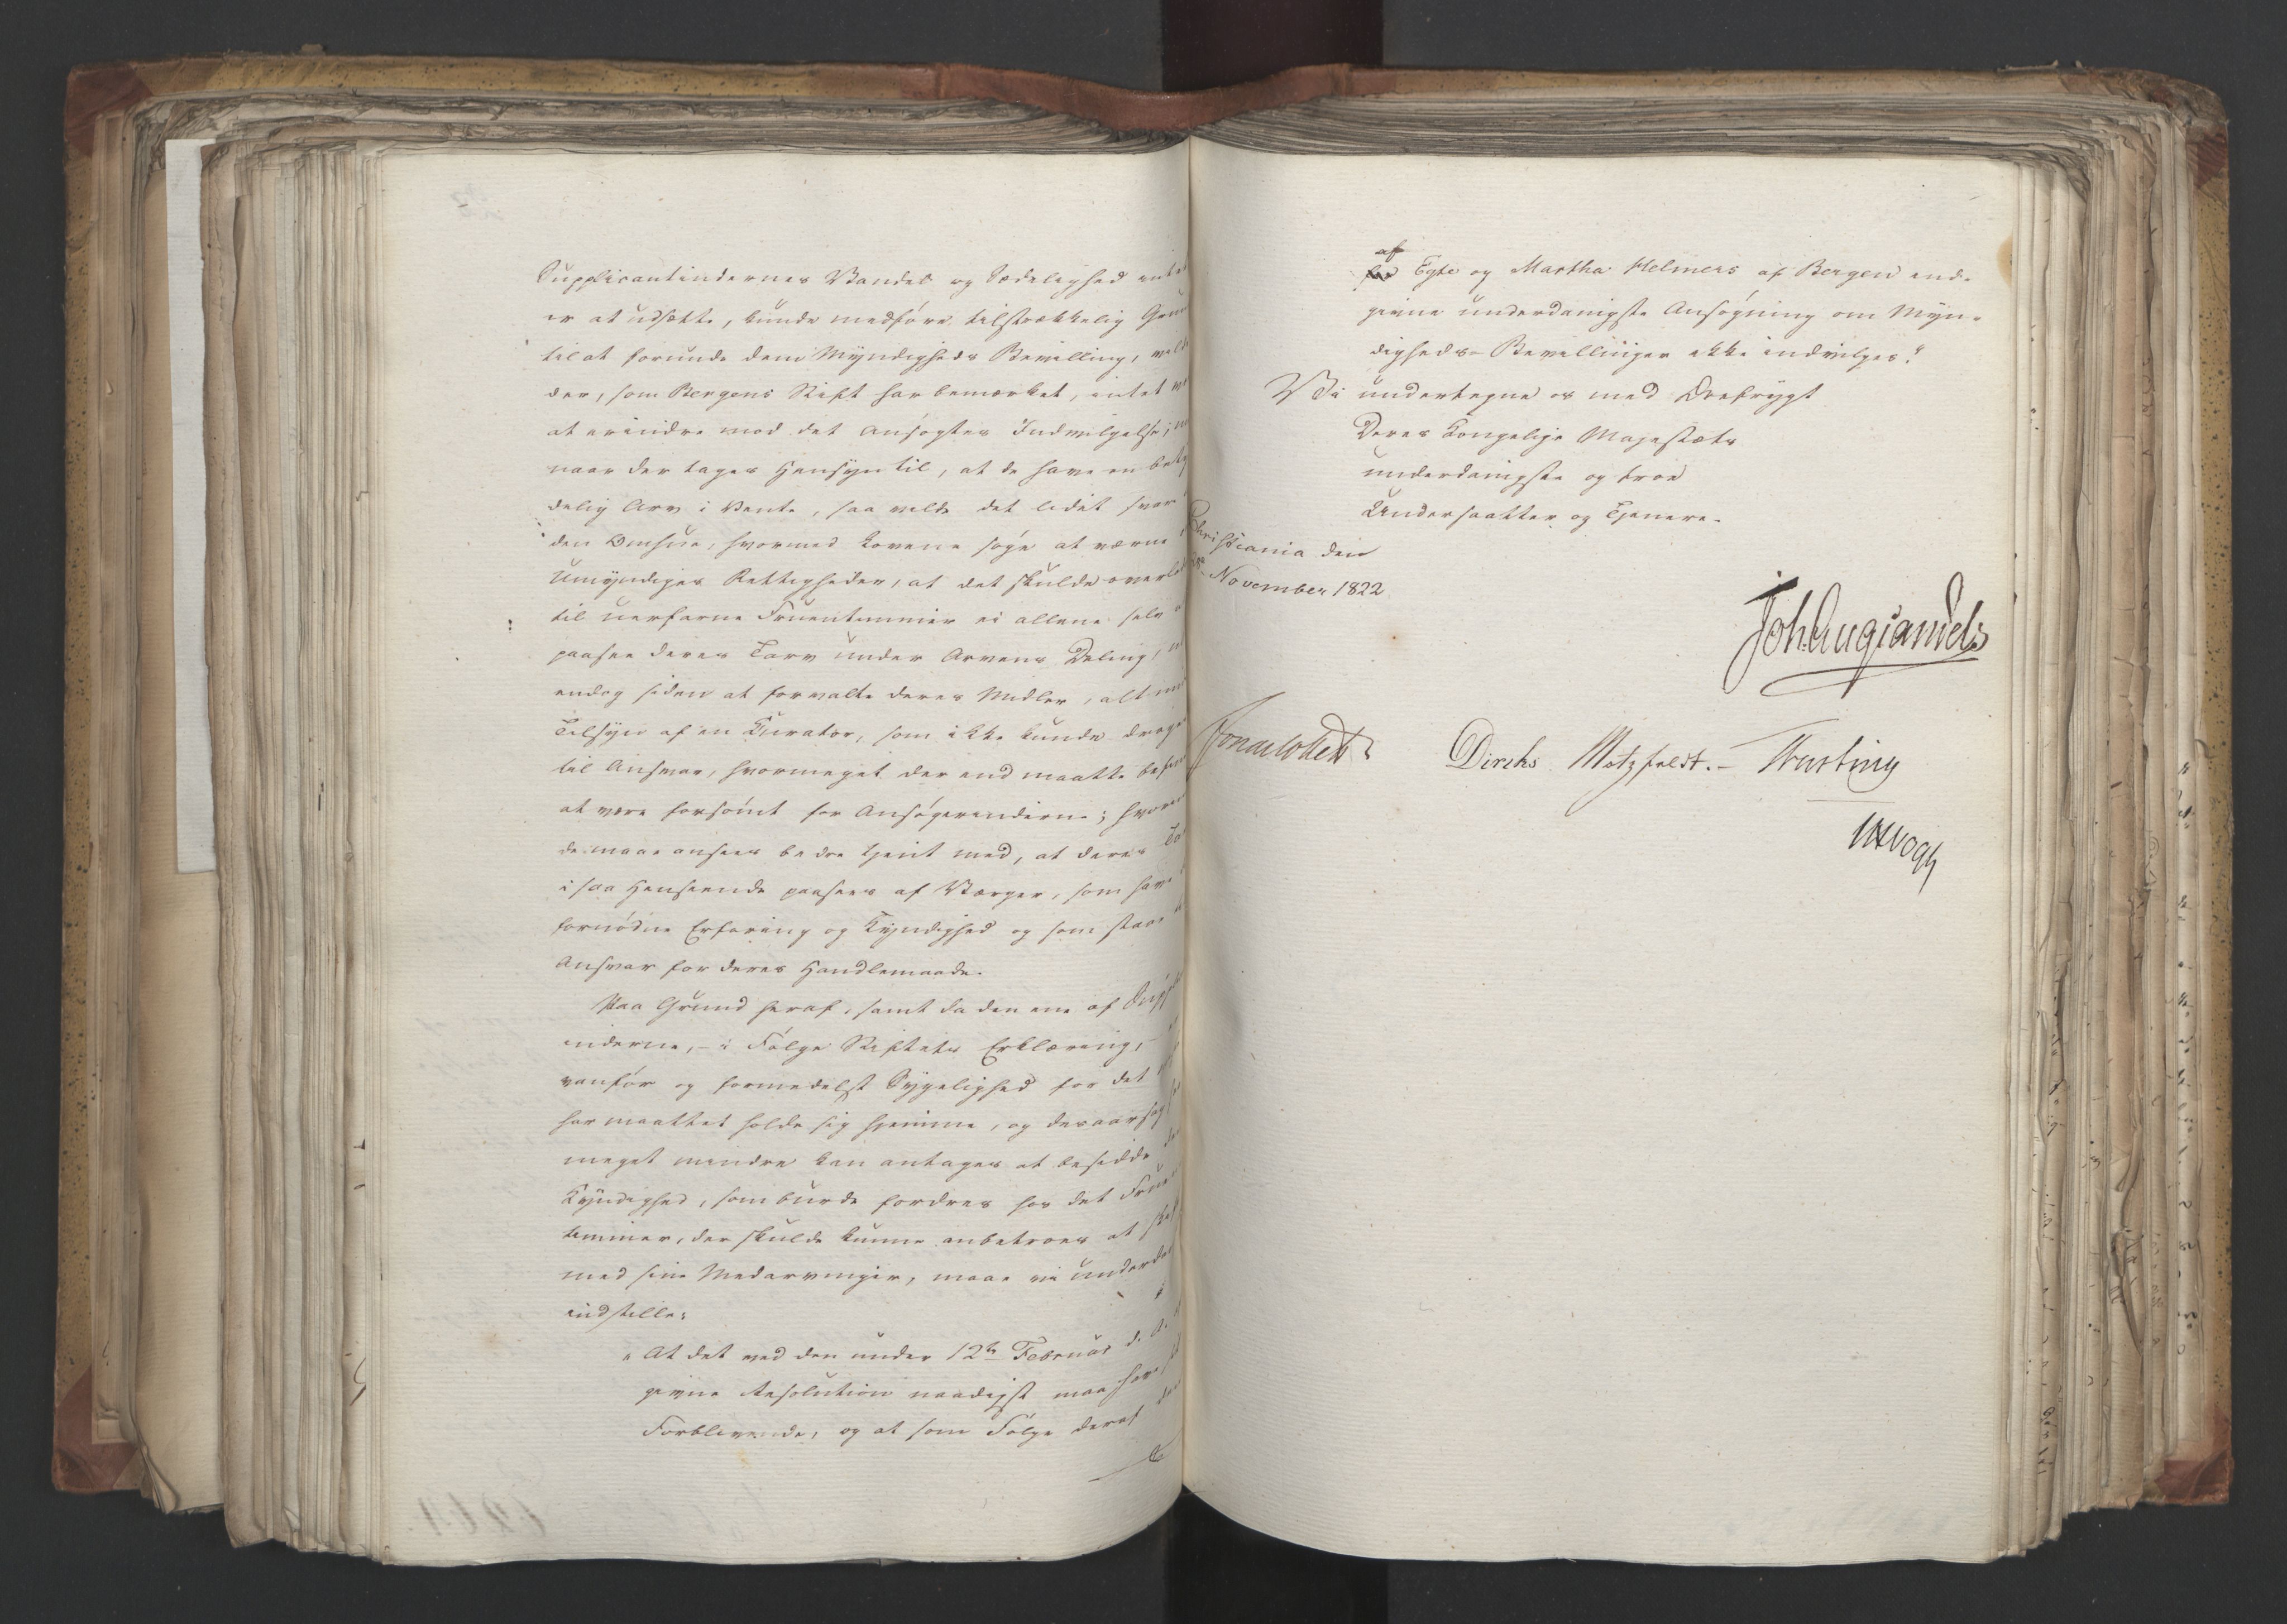 Supplicantindernes Vandel og Sædelighed intet
er at udsætte, kunde medføre tilstrækkelig Grund
til at forunde dem Myndigheds Bevilling, vilde
der, som Bergens Stift har bemærket, intet
at erindre mod det Ansøgtes Indvilgelse;
naar der tages Hensyn til, at de have en bety
delig Arv i Vente, saa vilde det lidet svare
den Omhue, hvormed Lovene søge at værne
Umyndiges Rettigheder, at det skulde overlades
til uerfarne Fruentimmer ei allene selv
paasee deres Tarv under Arvens Deling,
endog siden at forvalte deres Midler, alt under
Tilsyn af en Kurator, som ikke kunde drages
til Ansvar, hvormeget der end maatte befindes
at være forsømt for Ansøgerinderne; hvorimod
de maae ansees bedre tjent med, at deres Tarv
i saa Henseende paasees af Værger, som have
fornødne Erfaring og Kyndighed og som staae
Ansvar for deres Handlemaade.
Paa Grund heraf, samt da den ene af Suppli
inderne, - i Følge Stiftets Erklæring, -
vanfør og formedelst Sygelighed for det
har maattet holde sig hjemme, og desaarsag
meget mindre kan antages at besidde den
Kyndighed, som burde fordres hos det Fruen
timmer, der skulde kunne anbetroes at skifte
med sine Medarvinger, maae vi underdanigst
indstille:
"At det ved den under 12te Februar d. A.
givne Resolution naadigst maa have
Forblivende, og at som Følge deraf
af
Egte og Martha Helmers af Bergen ind-
givne underdanigste Ansøgning om Myn-
digheds-Bevillinger ikke indvilges."
Vi undertegne os med Ærefrygt
Deres Kongelige Majestæts
underdanigste og troe
Undersaatter og Tjenere.
Christiania den
November 1822
Joh Aug Sandels
Jonas Collett
Diriks Motzfeldt. - Krebting
JHVogt